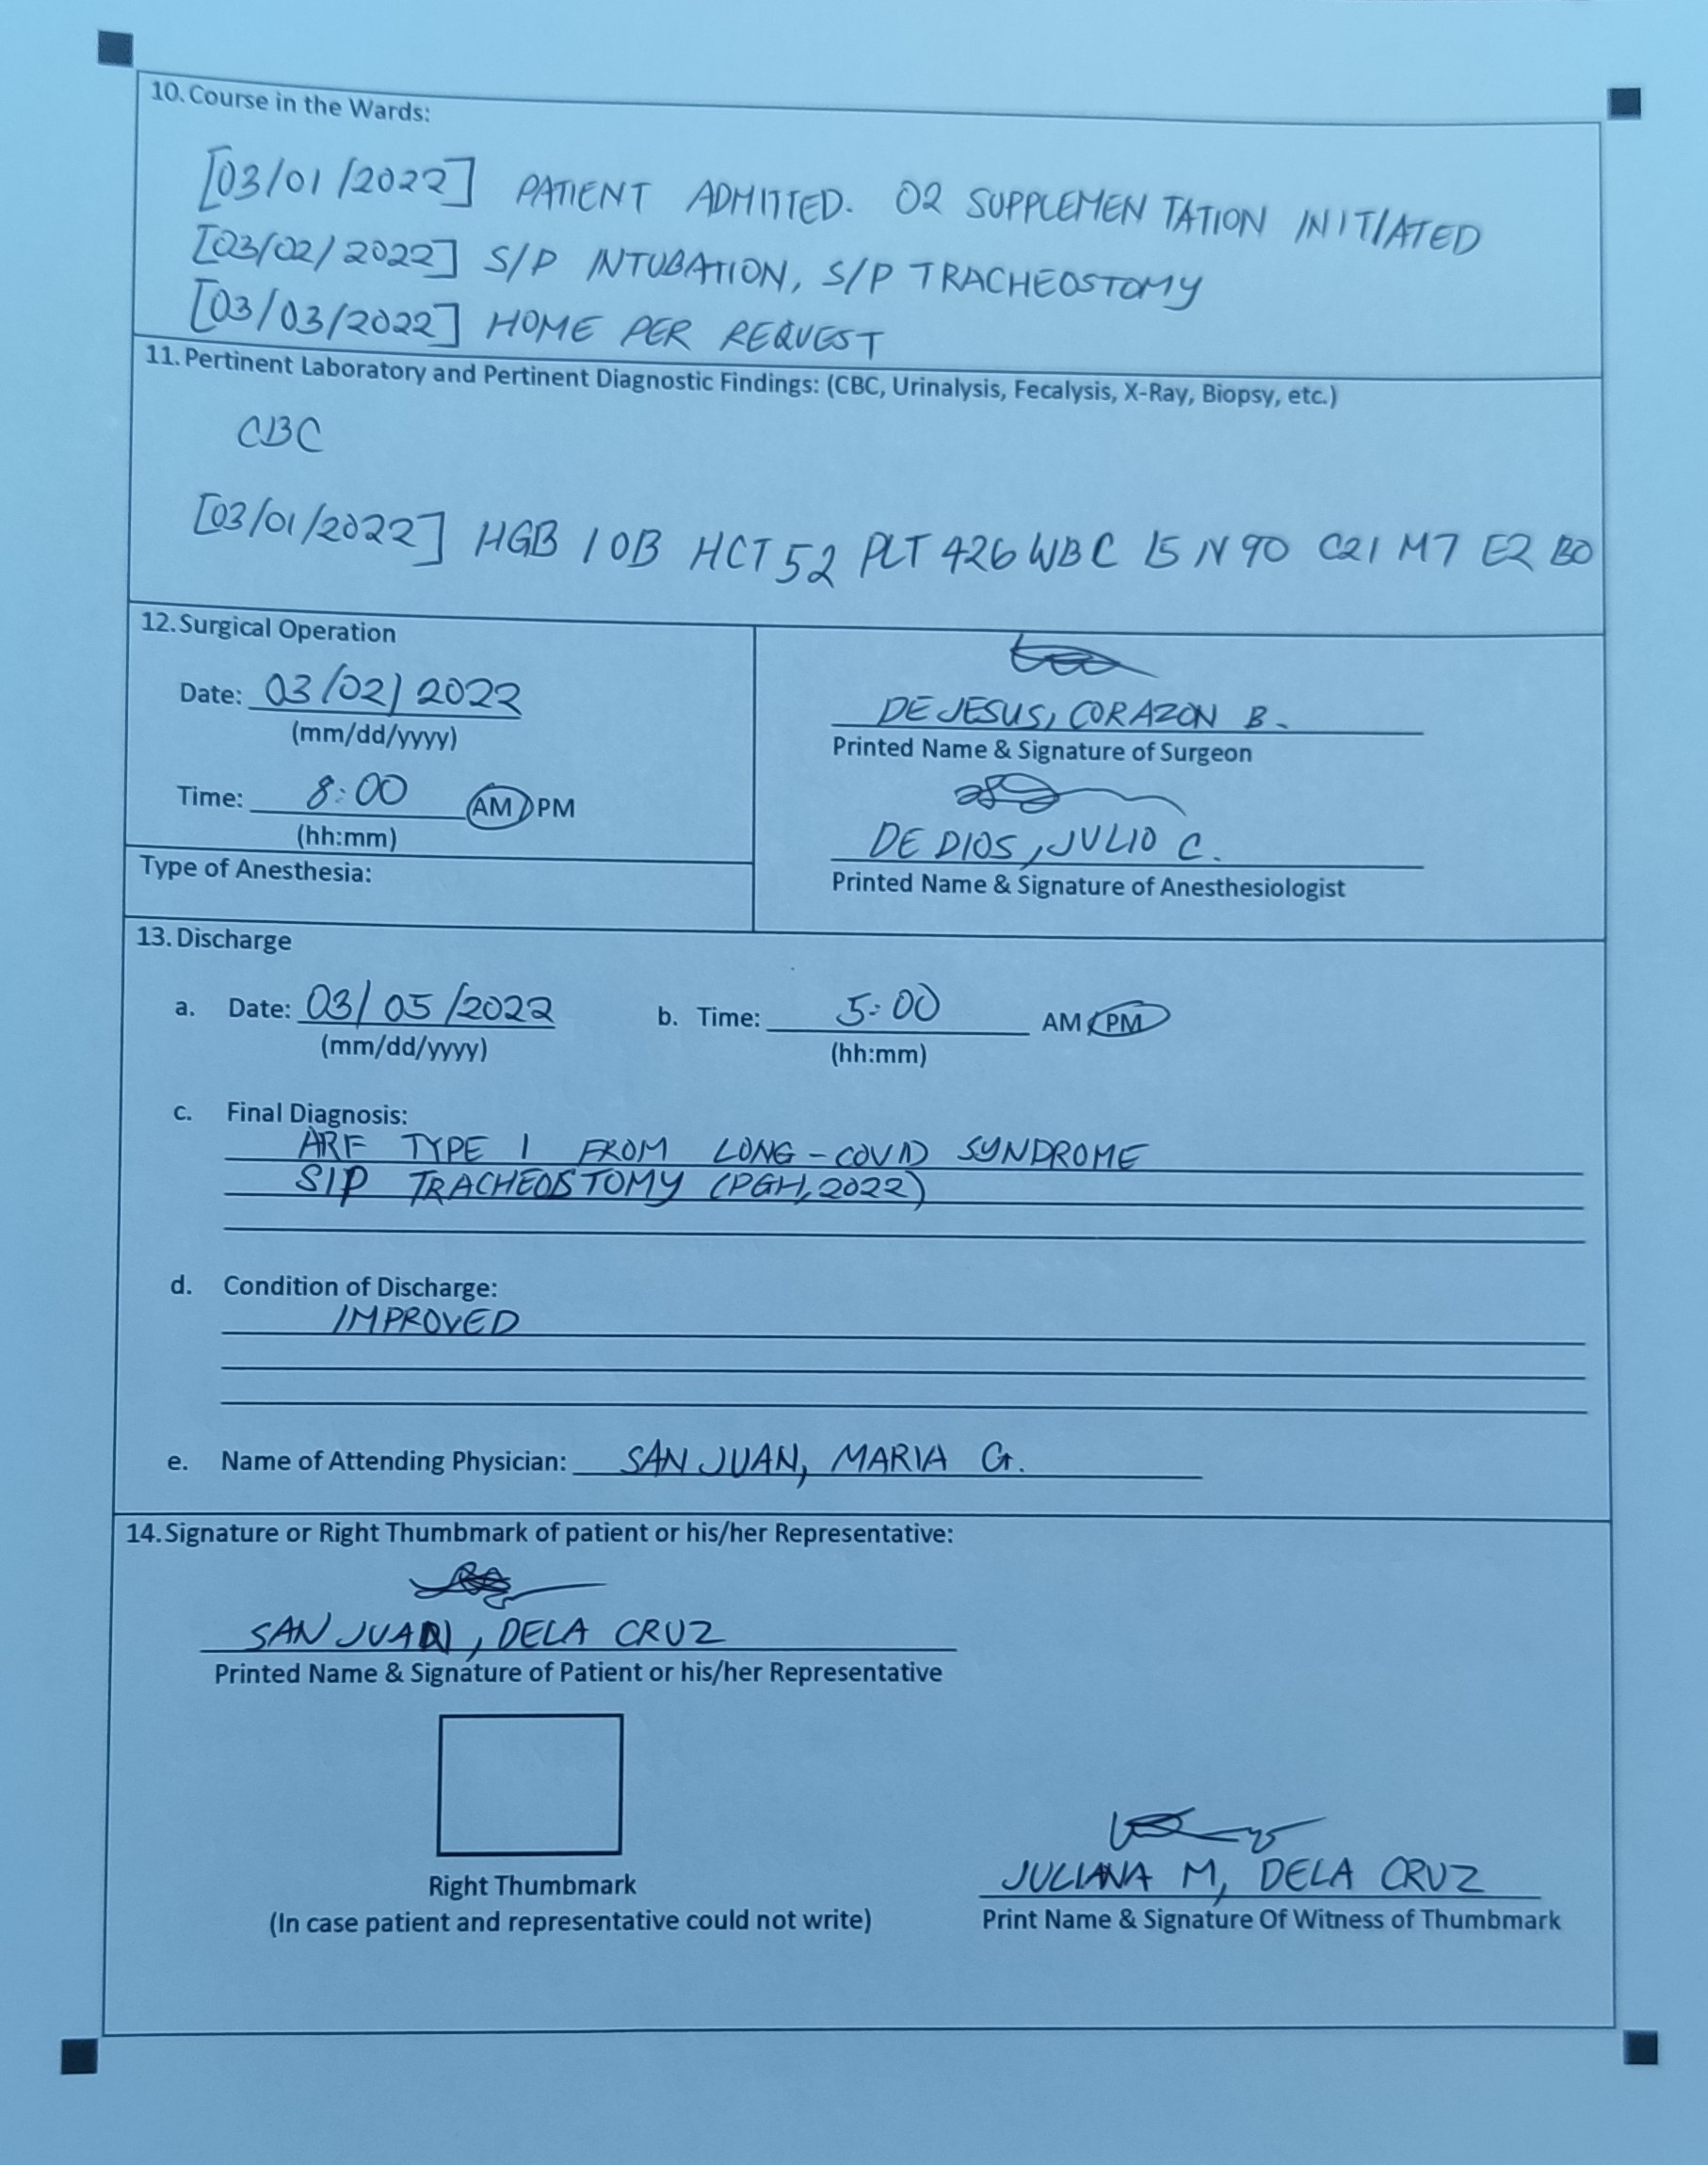 10. Course in the Wards:
[03/01/2022] PATIENT ADMITTED. O2 SUPPLEMENTATION INITIATED
[03/02/2022] S/P INTUBATION, S/P TRACHEOSTOMY
[03/03/2022] HOME PER REQUEST
11. Pertinent Laboratory and Pertinent Diagnostic Findings: (CBC, Urinalysis, Fecalysis, X-Ray, Biopsy, etc.)
CBC
[03/01/2022] HGB 10B HCT 52 PLT 426 WBC 15 N 90 C21 M7 E2 B0
12. Surgical Operation
Date: 03/02/2022
(mm/dd/yyyy)
Time: 8:00 AM PM
(hh:mm)
Type of Anesthesia:
DE JESUS, CORAZON B.
Printed Name & Signature of Surgeon
DE DIOS, JULIO C.
Printed Name & Signature of Anesthesiologist
13. Discharge
a. Date: 03/05/2022 b. Time: 5:00 AM PM
(mm/dd/yyyy) (hh:mm)
c. Final Diagnosis:
ARF TYPE 1 FROM LONG-COVID SYNDROME
S/P TRACHEOSTOMY (PGH, 2022)
d. Condition of Discharge:
IMPROVED
e. Name of Attending Physician: SAN JUAN, MARIA G.
14. Signature or Right Thumbmark of patient or his/her Representative:
SAN JUAN, DELA CRUZ
Printed Name & Signature of Patient or his/her Representative
Right Thumbmark
(In case patient and representative could not write)
JULIANA M, DELA CRUZ
Print Name & Signature Of Witness of Thumbmark